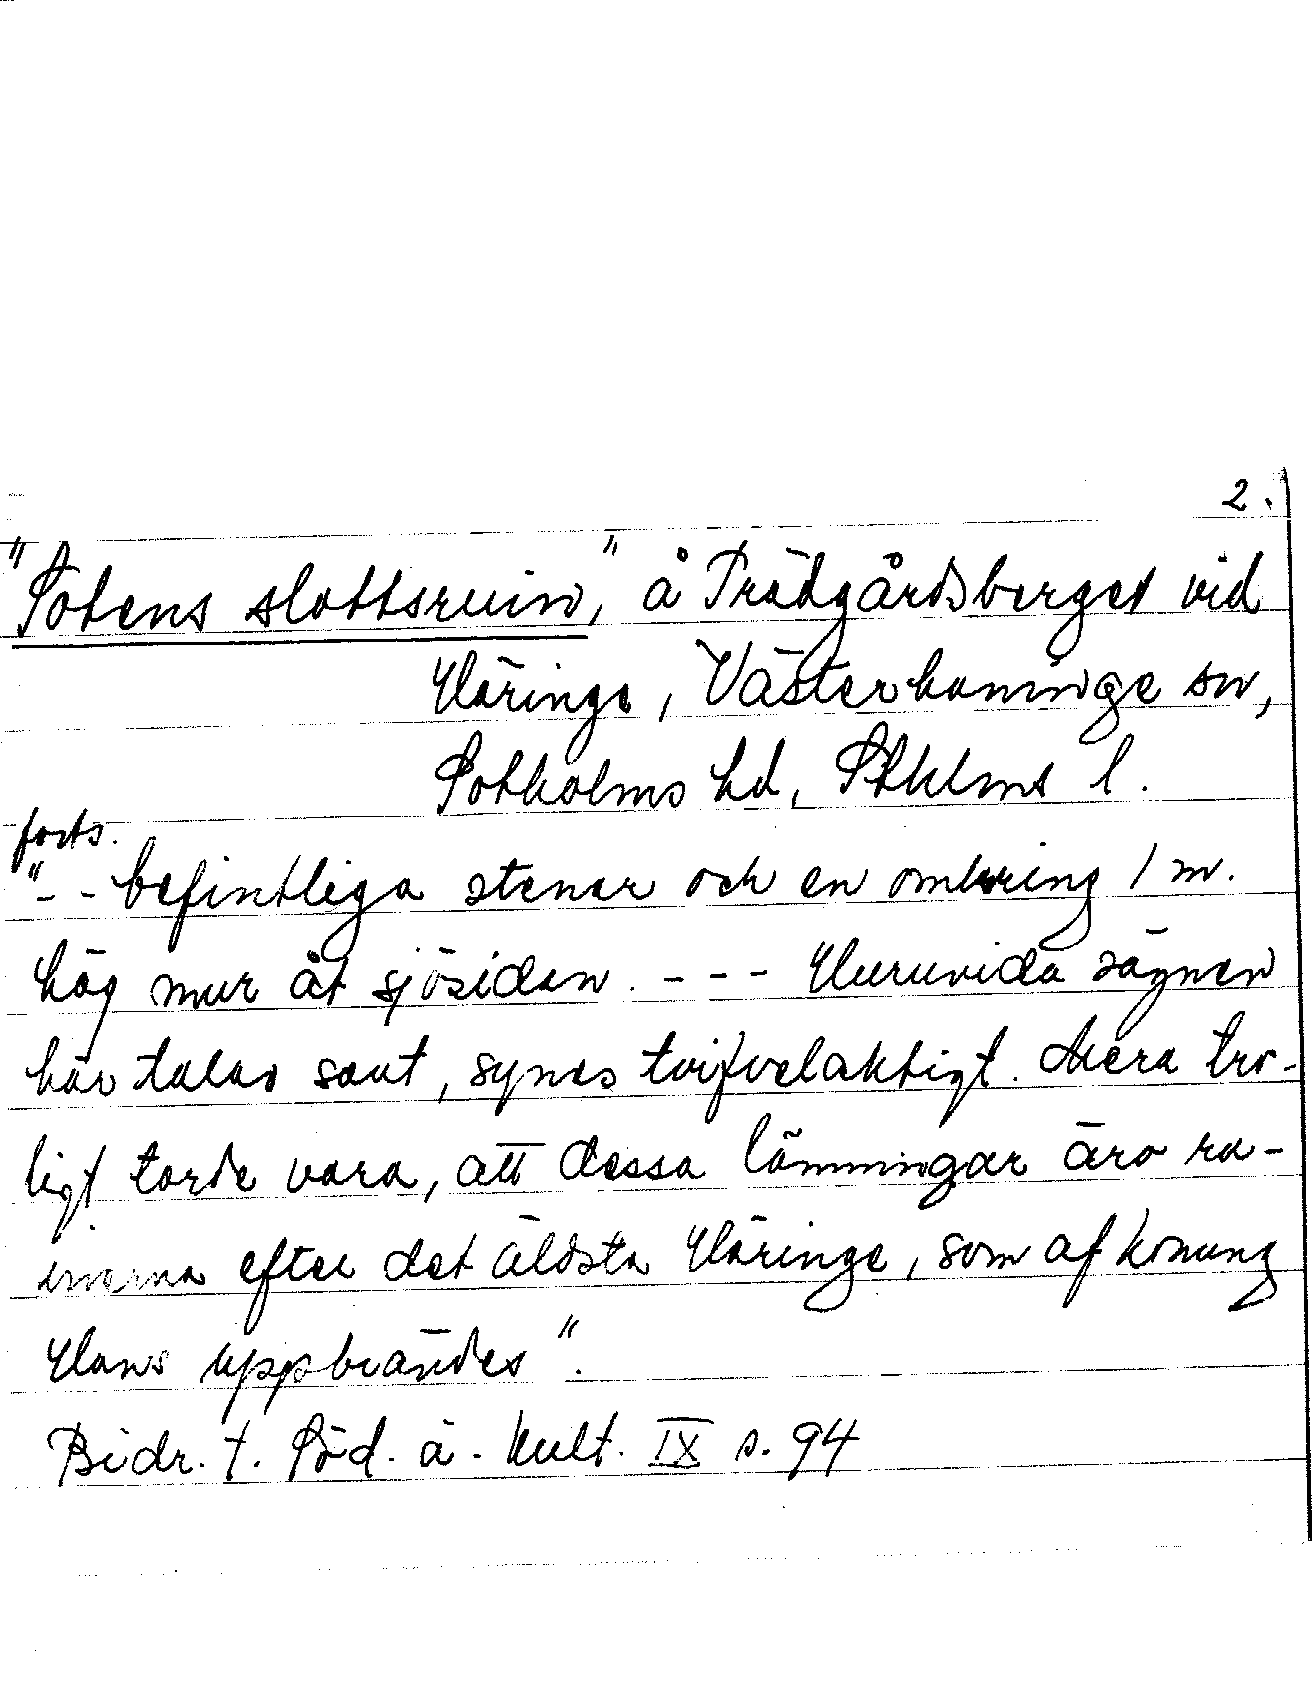 2.
"Sotens slottsruin", å Trädgårdsberget vid
Häringe, Västerhaninge sn,
Sotholms hd, Sthlms l.
forts.
"- - befintliga stenar och en omkring 1 m.
hög mur åt sjösidan. - - - Huruvida sägnen
här talar sant, synes tvifvelaktigt. Mera tro-
ligt torde vara, att dessa lämningar äro ru-
inerna efter det äldsta Häringe, som af konung
Hans uppbrändes".
Bidr. t. Söd. ä. kult. IX s. 94